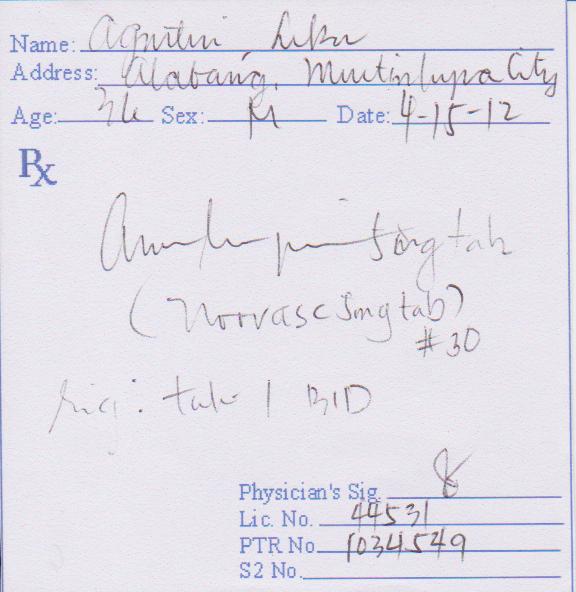 Name: Agustin, Luka
Address: Alabang, Muntinlupa City
Age: 36 Sex: M Date: 4-15-12
Rx
5mg tab
(Norvasc 5mg tab)
#30
Sig: tab 1 BID
Physician's Sig.
Lic. No. 44531
PTR No. 1034549
S2 No.